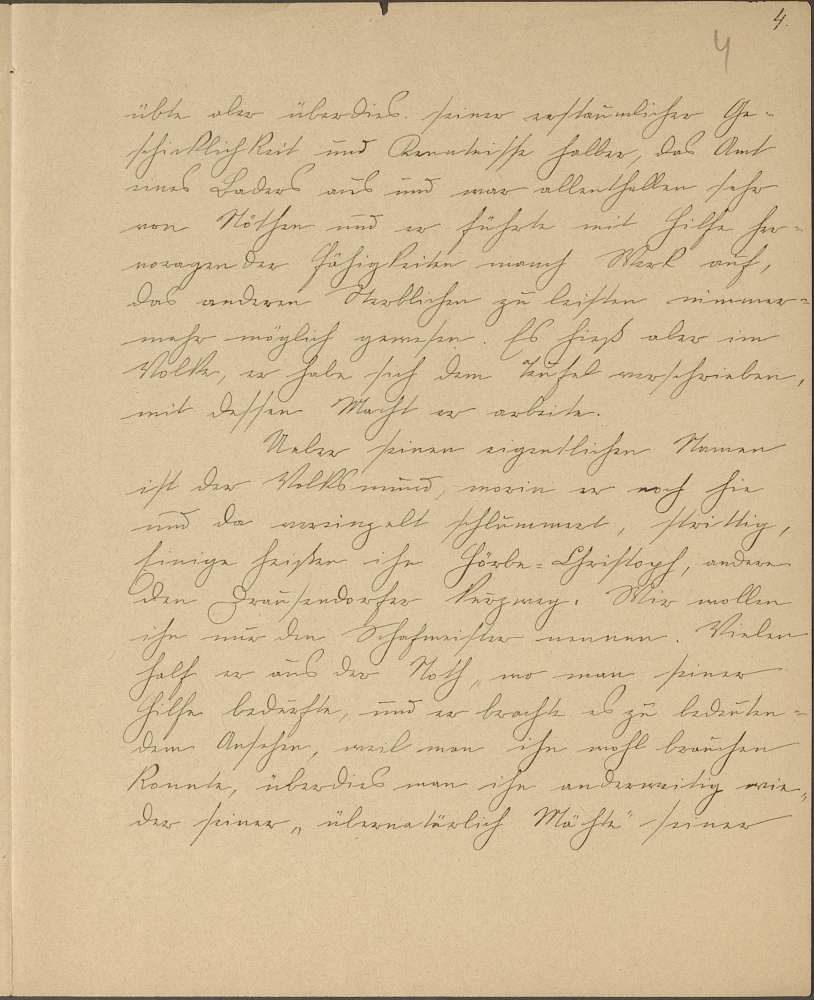 4.
4
übte aber überdies. seiner erstaunlicher Ge-
schicklichkeit und Kenntnisse halber, das Amt
eines Baders aus und war allenthalben sehr
von Nöthen und er führte mit Hilfe her-
voragender Fähigkeiten manch Werk auf,
das anderen Sterblichen zu leisten nimmer-
mehr möglich gewesen. Es hieß aber im
Volke, er habe sich dem Teufel verschrieben,
mit dessen Macht er arbeite.
Ueber seinen eigentlichen Namen
ist der Volksmund, worin er noch hie
und da vereinzelt schlummert, strittig,
Einige heißen ihn Hörbe-Christoph, andere
den Drausendorfer Wir wollen
ihn nur den Schafmeister nennen. Vielen
half er aus der Noth, wo man seiner
Hilfe bedurfte, und er brachte es zu bedeuten-
dem Ansehen, weil man ihn wohl brauchen
konnte, überdies man ihn anderweitig wie-
der seiner „übernatürlich Mächte" seiner